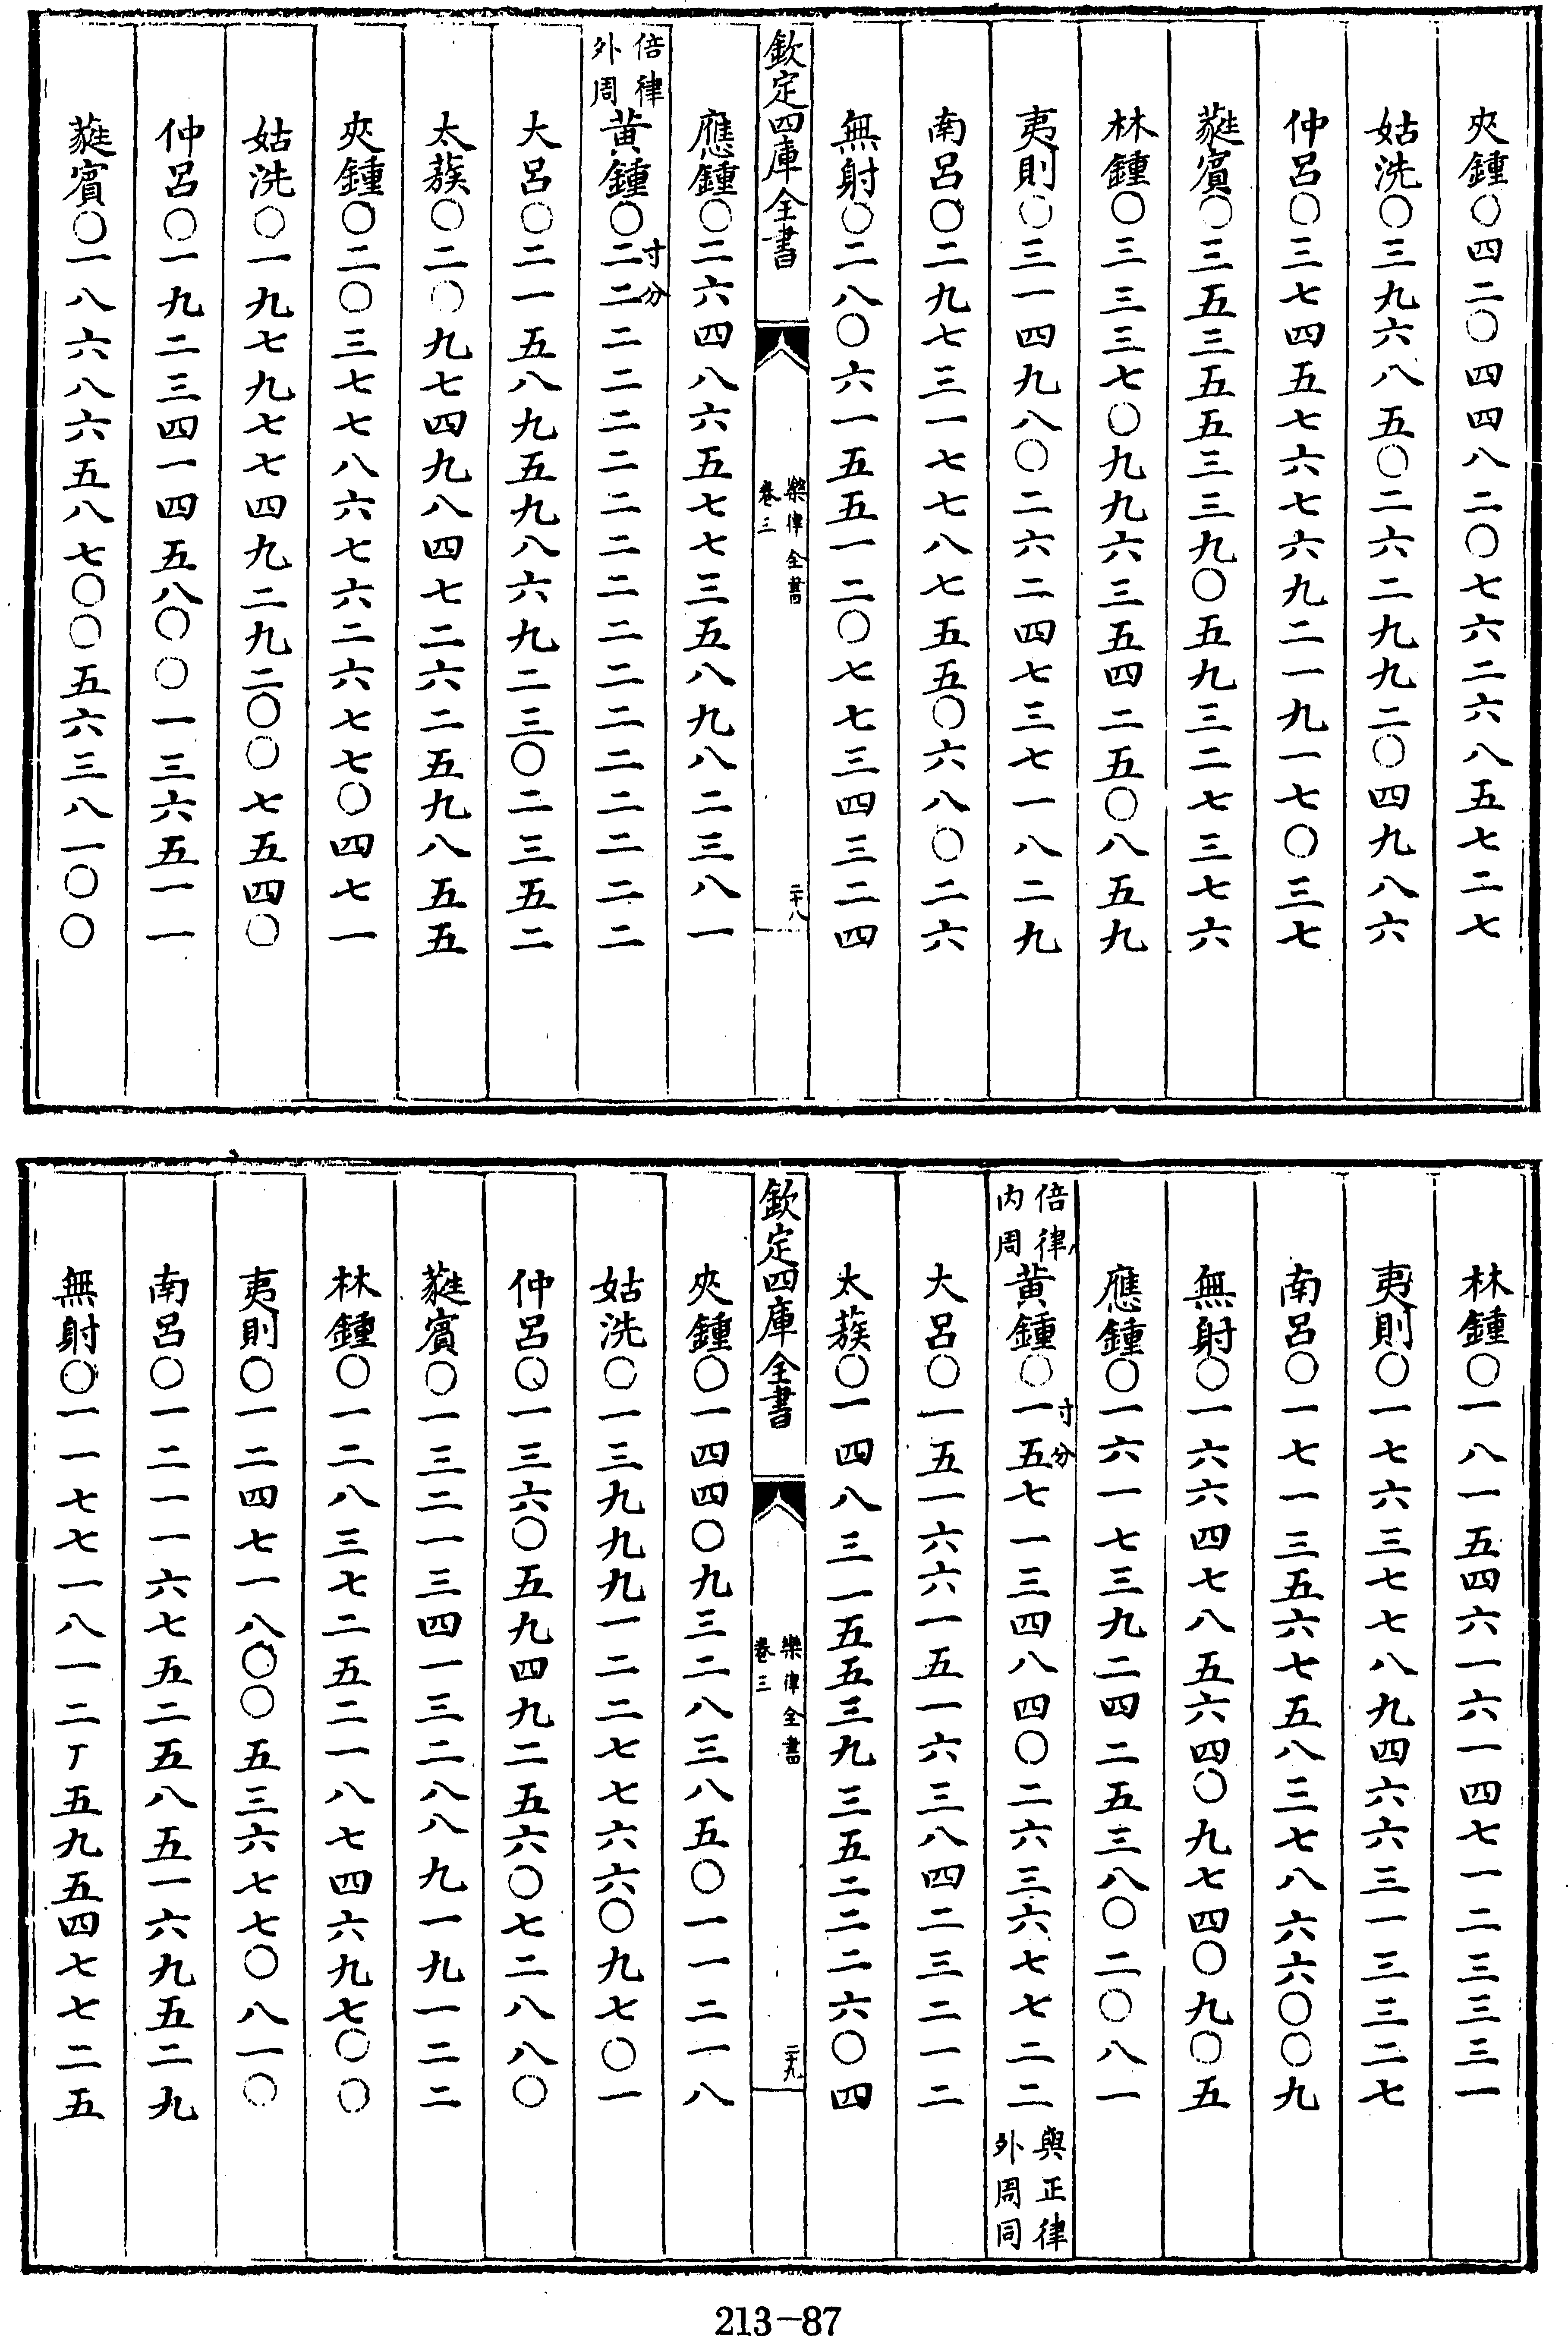 夾鍾〇四二〇四四八二〇七六二六八五七二七
姑洗〇三九六八五〇二六二九九二〇四九八六
仲呂〇三七四五七六七六九二一九一七〇三七
蕤賓〇三五三五五三三九〇五九三二七三七六
林鍾〇三三三七〇九九六三五四二五〇八五九
夷則〇三一四九八〇二六二四七三七一八二九
南呂〇二九七三一七七八七五五〇六八〇二六
無射〇二八〇六一五五一二〇七七三四三二四
欽定四庫全書
樂律全書
卷三
二十八
應鍾〇二六四八六五七七三五八九八二三八一
倍律
外周
寸分
黃鍾〇二二二二二二二二二二二二二二二二二
大呂〇二一五八九五九八六九二三〇二三五二
太蔟〇二〇九七四九八四七二六二五九八五五
夾鍾〇二〇三七七八六七六二六七七〇四七一
姑洗〇一九七九七七四九二九二〇〇七五四〇
仲呂〇一九二三四一四五八〇〇一三六五一一
蕤賓〇一八六八六五八七〇〇五六三八一〇〇
林鍾〇一八一五四六一六一四七一二三三三一
夷則〇一七六三七七八九四六六三一三三二七
南呂〇一七一三五六七五八三七八六六〇〇九
無射〇一六六四七八五六四〇九七四〇九〇五
應鍾〇一六一七三九二四二五三八〇二〇八一
倍律
內周
寸分
黃鍾〇一五七一三四八四〇二六三六七七二二
與正律
外周同
大呂〇一五一六六一五一六三八四二三二一二
太蔟〇一四八三一五五三九三五二二二六〇四
欽定四庫全書
樂律全書
卷三
二十九
夾鍾〇一四四〇九三二八三八五〇一一二一八
姑洗〇一三九九九一二二七七六六〇九七〇一
仲呂〇一三六〇五九四九二五六〇七二八八〇
蕤賓〇一三二一三四一三二八八九一九一二二
林鍾〇一二八三七二五二一八七四六九七〇〇
夷則〇一二四七一八〇〇五三六七七〇八一〇
南呂〇一二一一六七五二五八五一六九五二九
無射〇一一七七一八一二丁五九五四七七二五
213-87